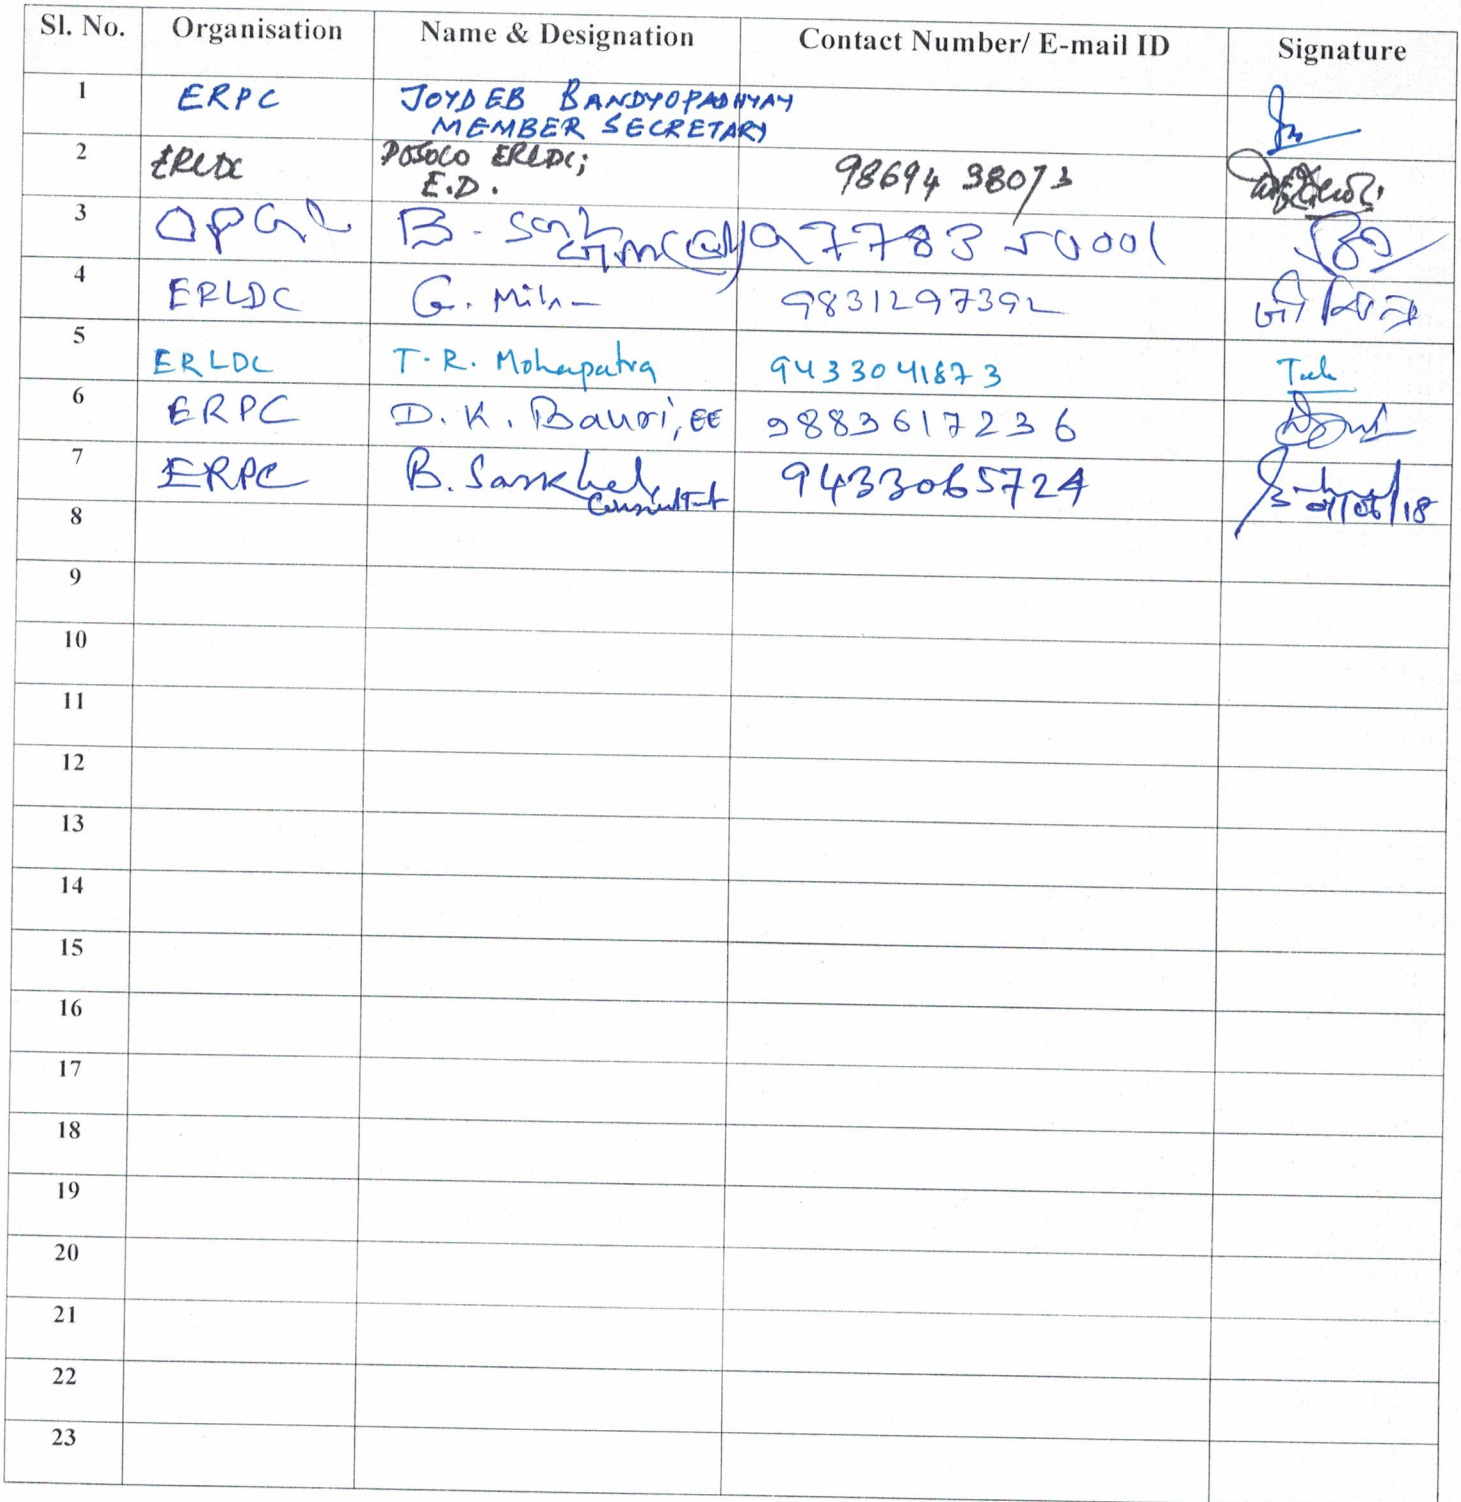 Sl. No. Organisation Name & Designation Contact Number/ E-mail ID Signature
1 ERPC JOYDEB BANDYOPADHYAY
MEMBER SECRETARY
2 ERLDC POSOCO ERLDC; 98694 38073
E.D.
3 OPGC B. 9778350001
4 ERLDC G. Mitra 9831297392
5 ERLDC T. R. Mohapatra 9433041873
6 ERPC D. K. Bauri, EE 9883617236
7 ERPC B. Sarkhel 9433065724
Consultant
8
9
10
11
12
13
14
15
16
17
18
19
20
21
22
23